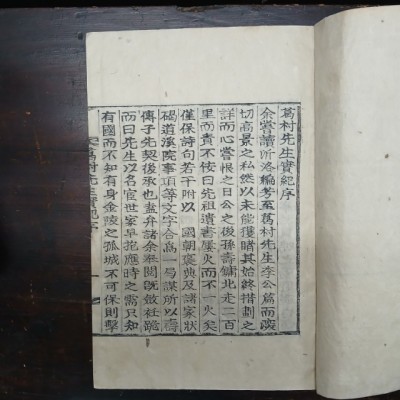 葛村先生實紀序
余嘗讀沂洛編芳至葛村先生李公篇而深
切高景之私總以未能獲睹其始終措劃之
詳而心嘗恨之日公之後孫壽鏞北走二百
里而責不佞曰先祖遺書屢火而不一火矣
僅保詩句若干附以 國朝褒典及諸家狀
碣道溪院事項等文字合為一局謀所以壽
傳子先契後承也盍弁諸余雖閼旣斂衽跪
而曰先生以名宦世家早抱應時之需只知
有國而不知有身金陵之孤城不可保則擊
葛村先生實紀序 一